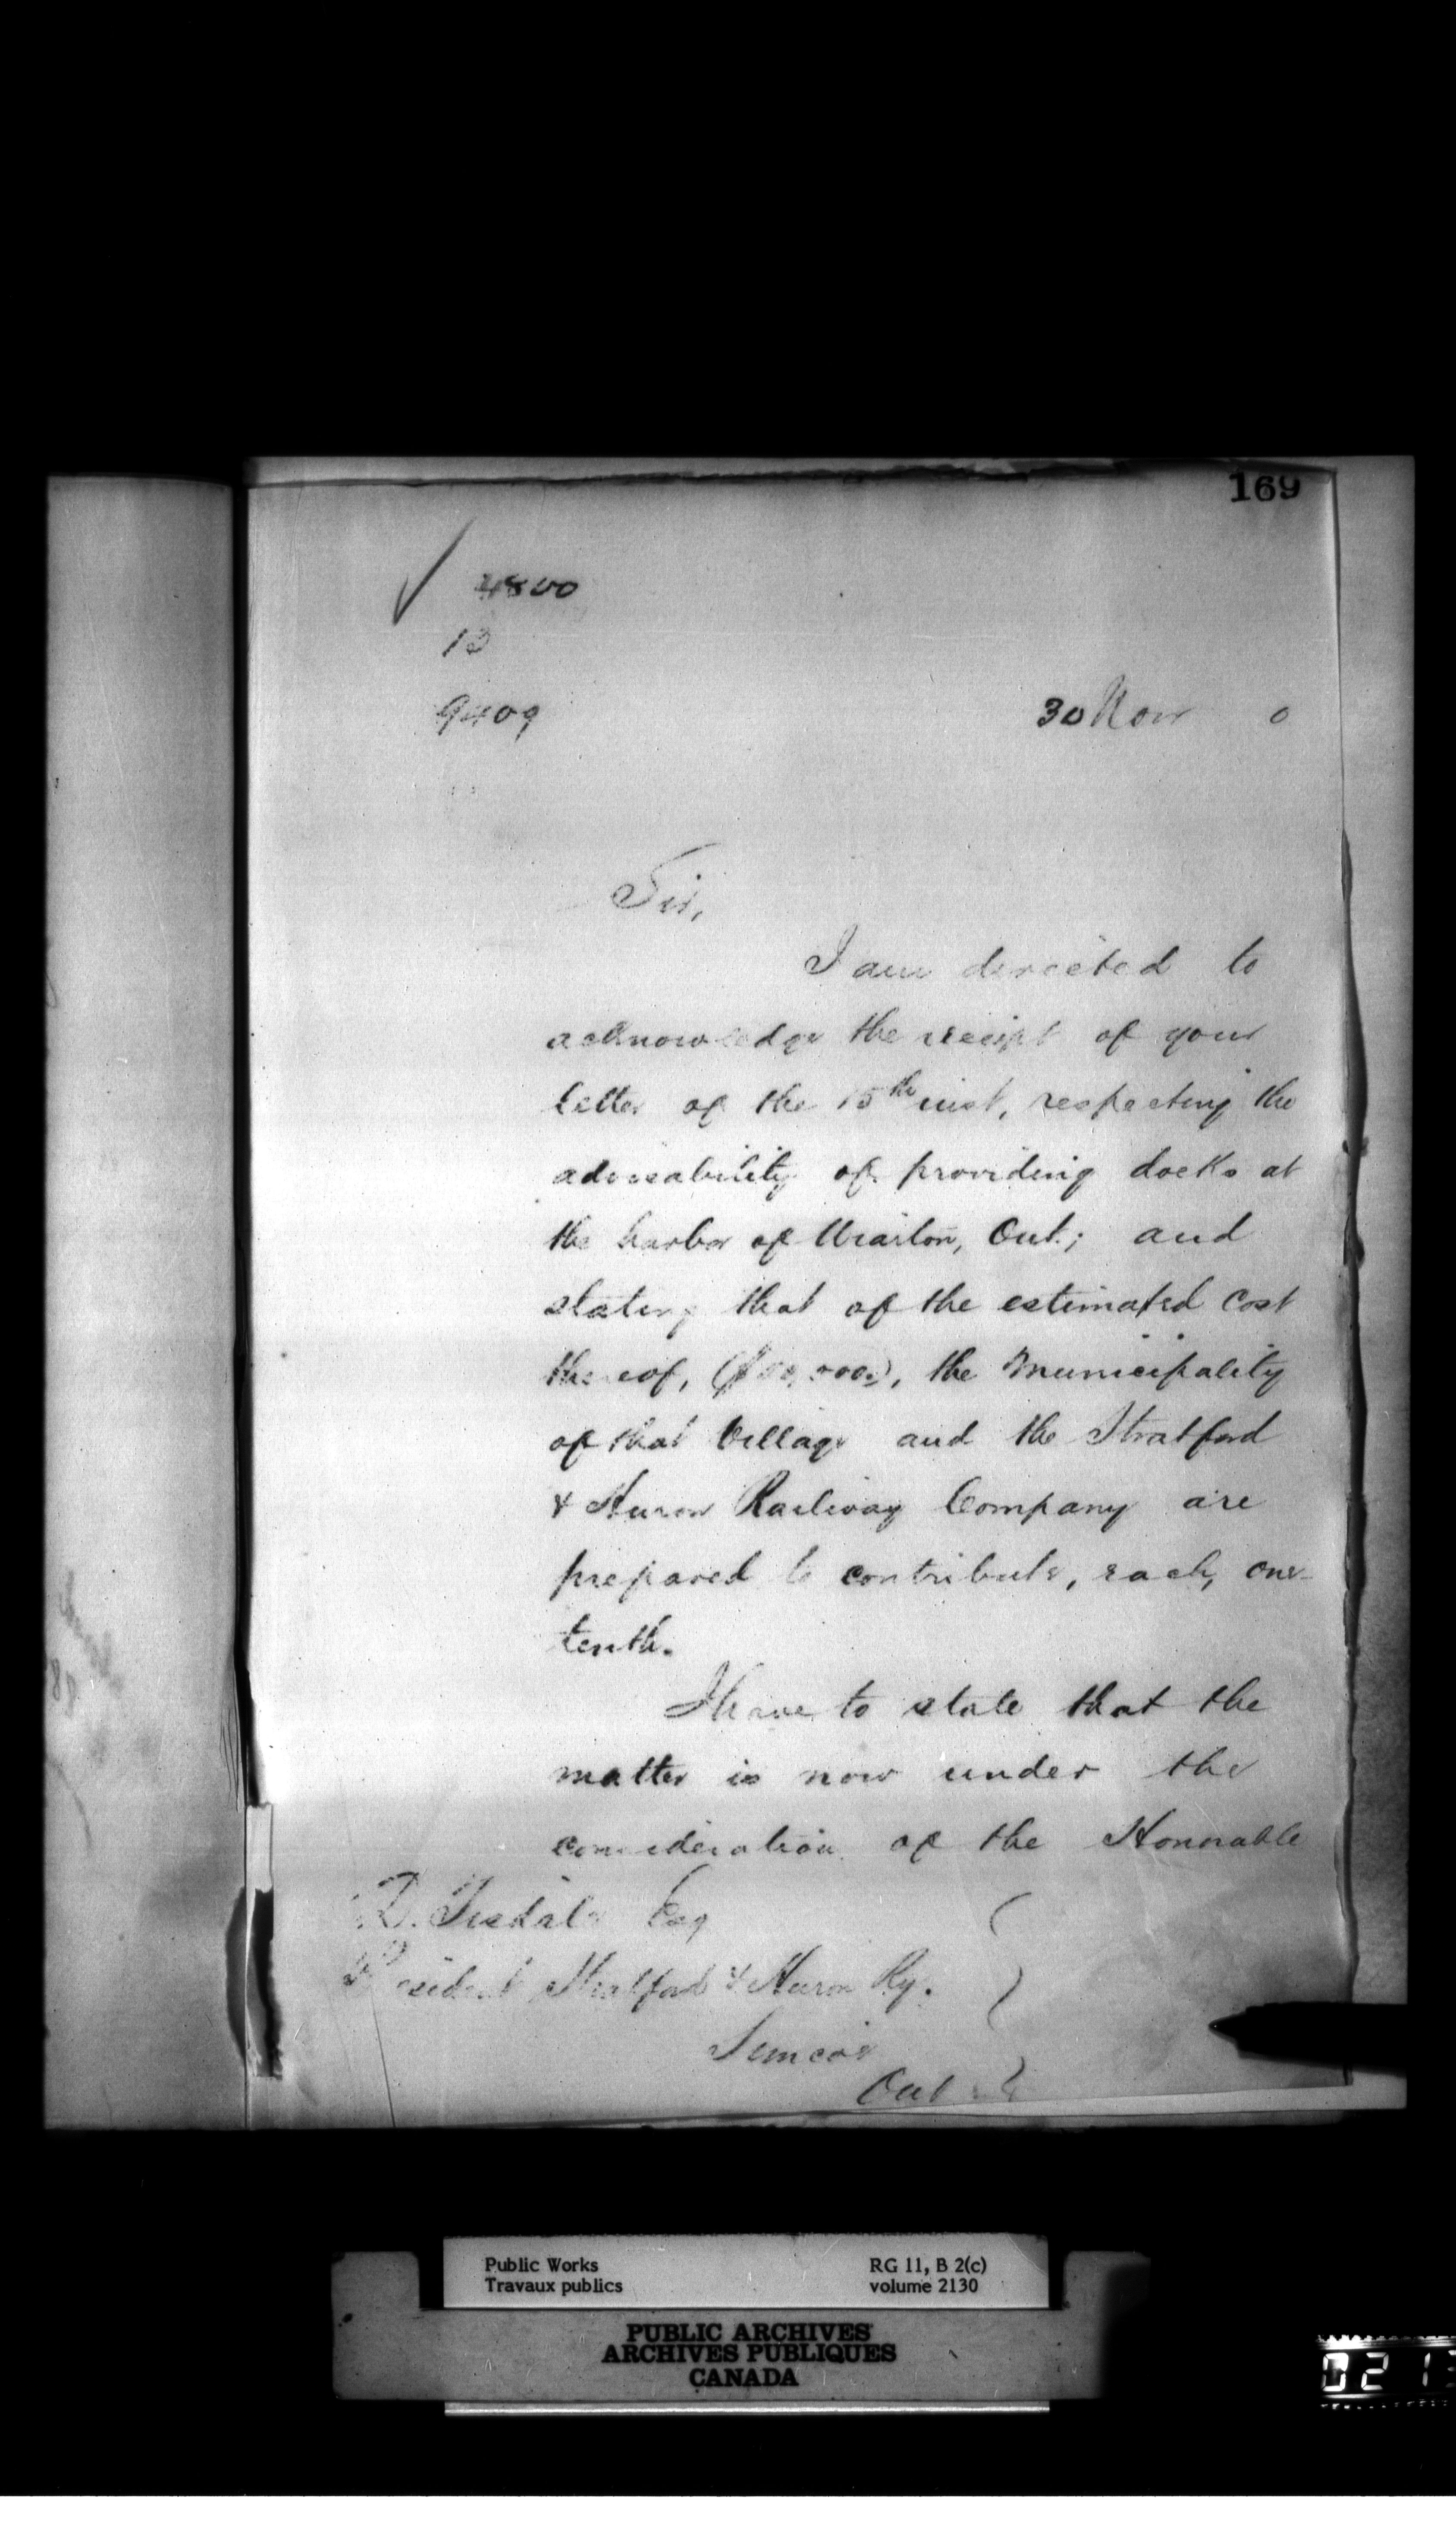 169
4800
13
9409
30 Nov 0
Sir,
I am directed to
acknowledge the receipt of your
letter of the 15th inst, respecting the
advisability of providing docks at
the harbor of Wiarton, Ont; and
stating that of the estimated cost
thereof, the Municipality
of that Village and the Stratford
& Huron Railway Company are
prepared to contribute, each, one-
tenth.
I have to state that the
matter is now under the
consideration of the Honorable
D. Tisdale Esq
President Stratford & Huron Ry.
Simcoe
Ont
Public Works
Travaux publics
RG 11, B 2(c)
volume 2130
PUBLIC ARCHIVES
ARCHIVES PUBLIQUES
CANADA
021